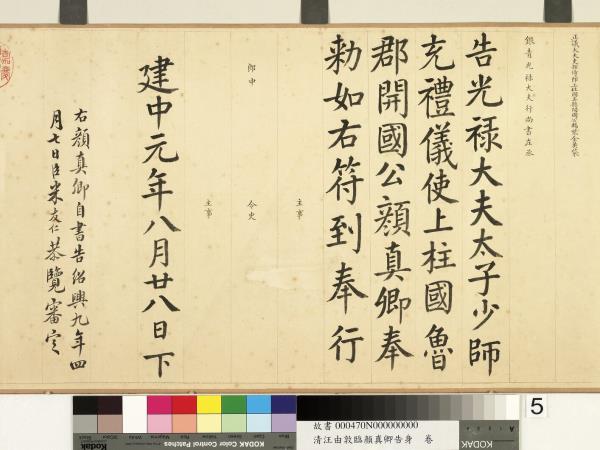 銀青光祿大夫行尚書左丞
告光祿大夫太子少師
充禮儀使上柱國魯
郡開國公顏真卿奉
勅如右符到奉行
主事
郎中
令史
主事
建中元年八月廿八日下
右顏真卿自書告紹興九年四
月七日臣米友仁恭覽審定
5
故書 000470N000000000
清汪由敦臨顏真卿告身 卷
KODAK Color Control Patches
Kodak
KODAK